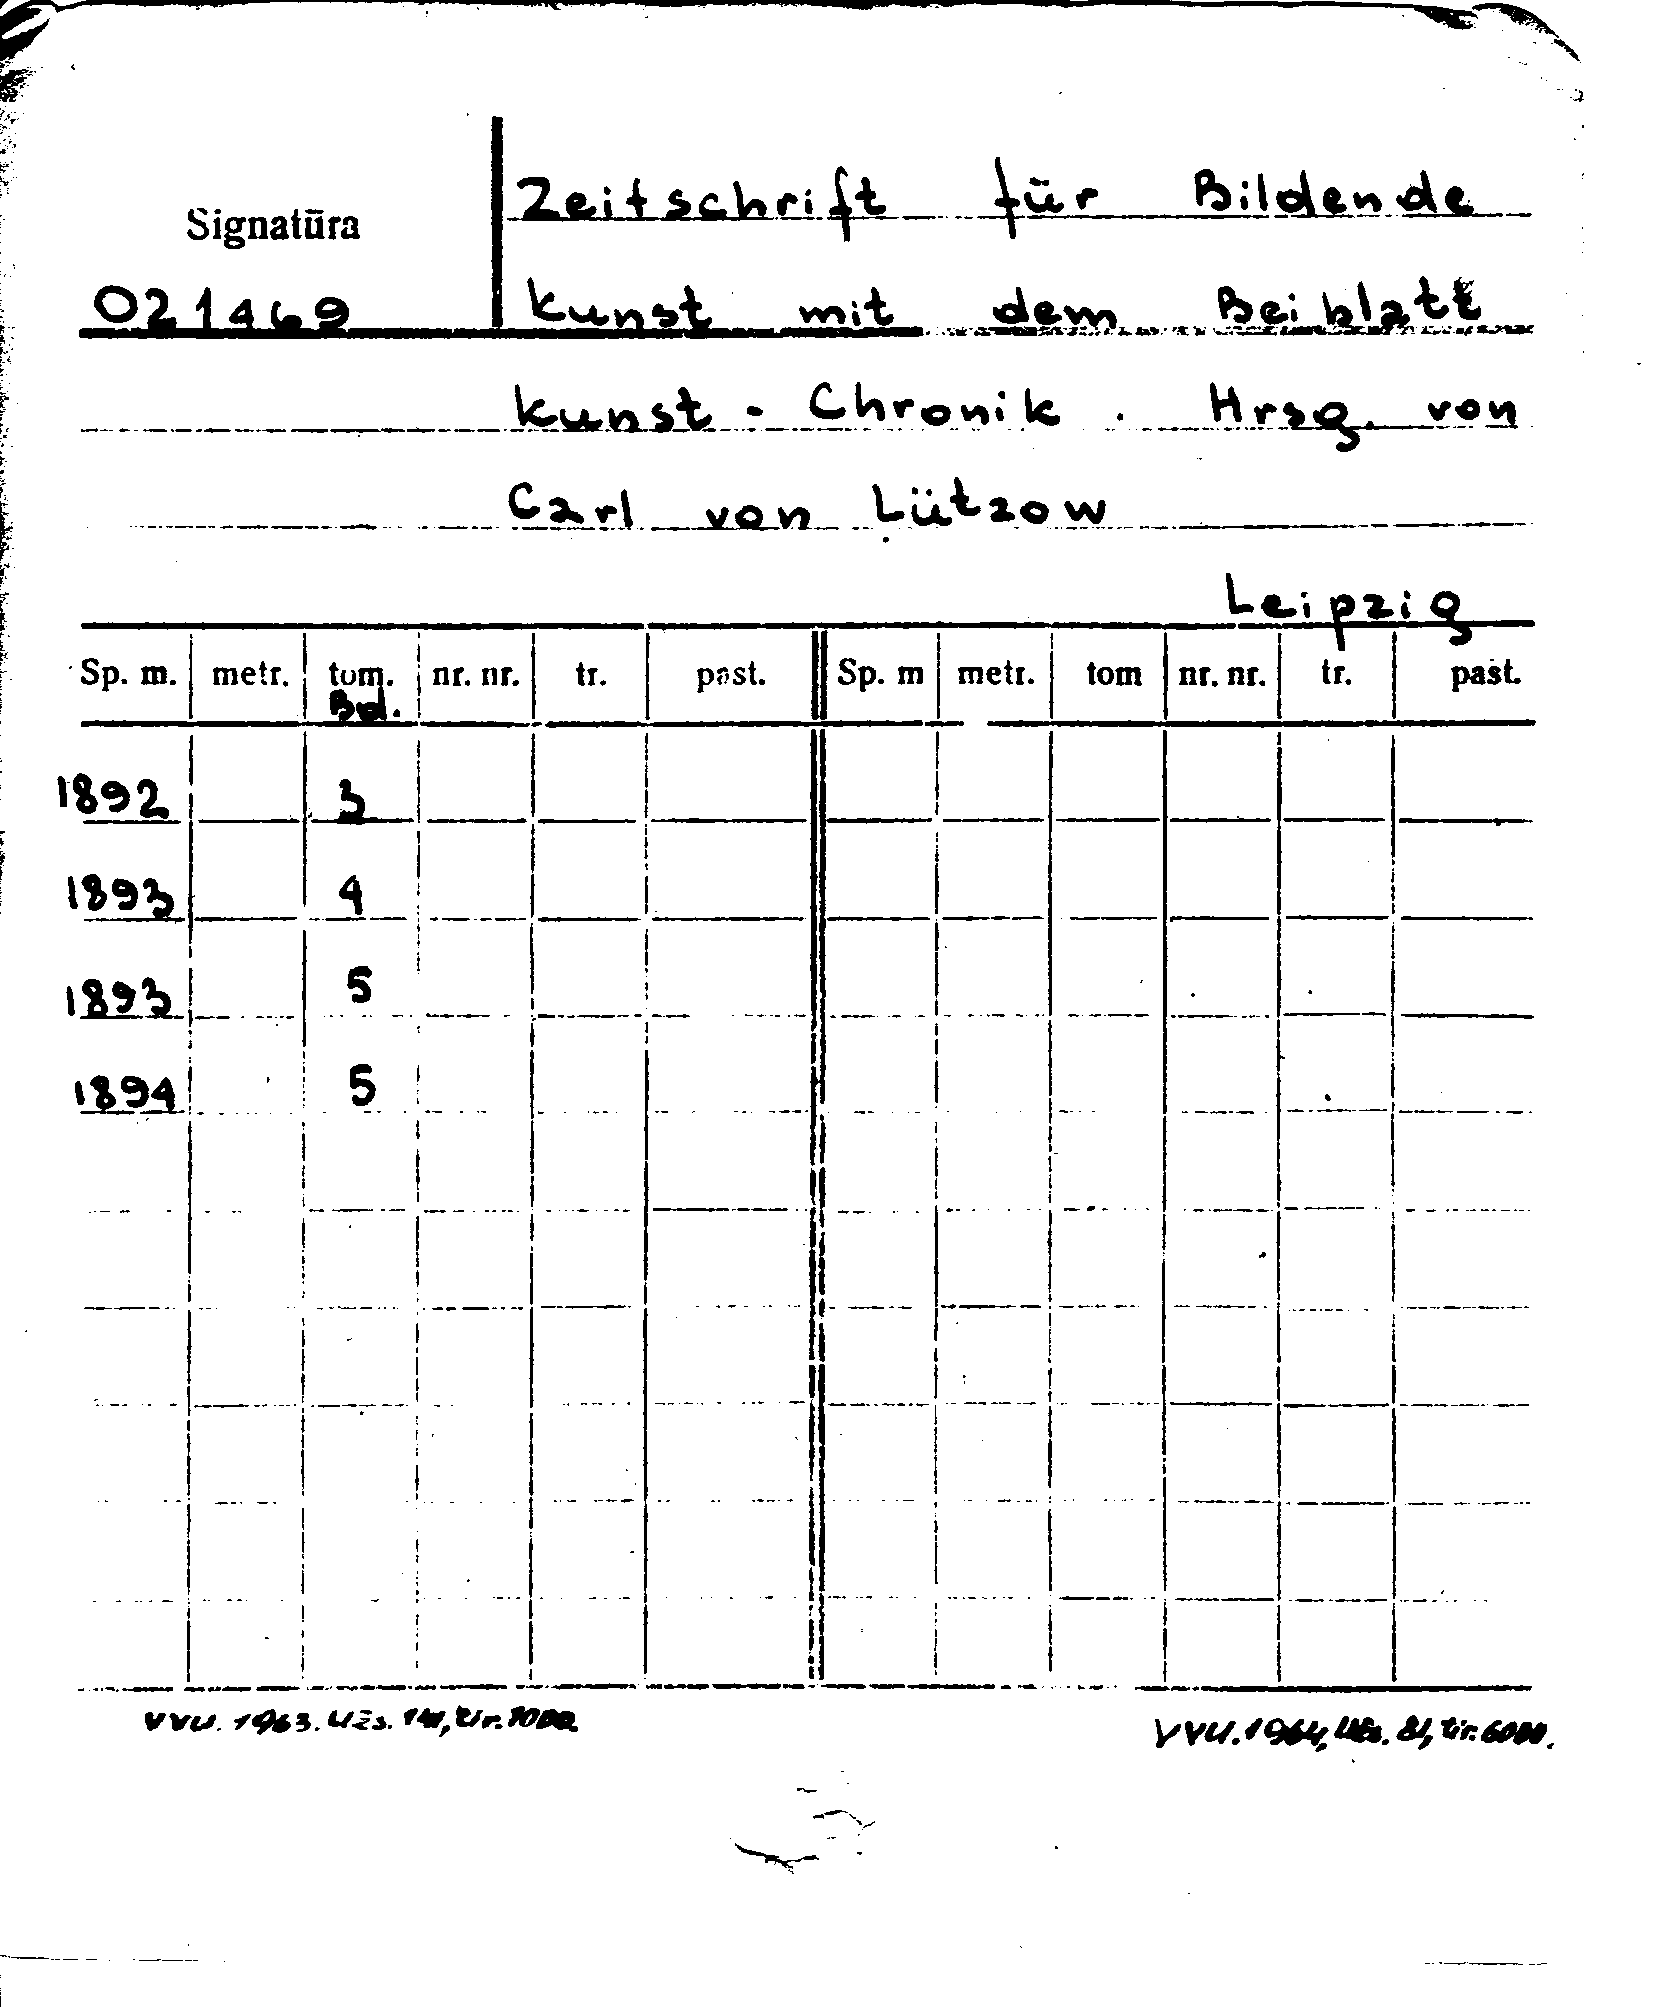 Signatūra
021469
Zeitschrift für Bildende
Kunst mit dem Beiblatt
Kunst - Chronik. Hrsg. von
Carl von Lützow
Leipzig
Sp. m. metr. tom. nr. nr. tr. past. Sp. m metr. tom nr. nr. tr. past.
Bd.
1892 3
1893 4
1893 5
1894 5
VVU. 1963. Užs. tir.
VVU. 1964, Užs. 81, tir. 6000.